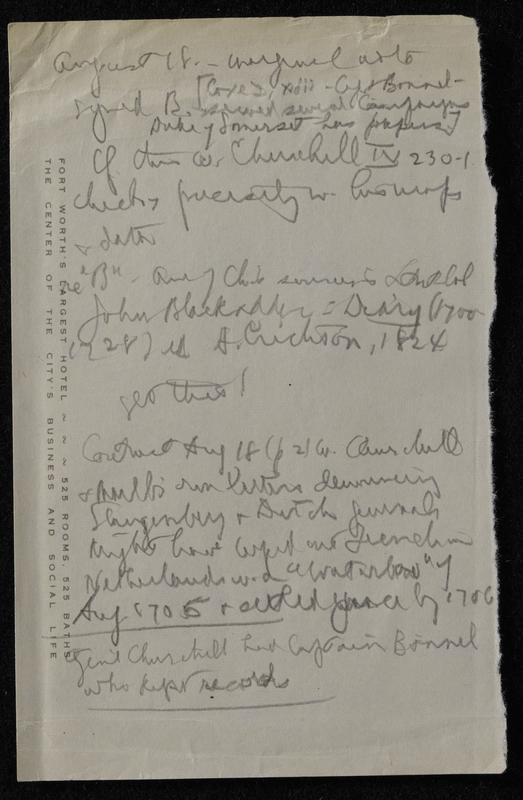 August 18. – marginal note
[Coxe I, xdii – Capt Bonnel –
signed B. served several Campaigns
Duke of Somerset has papers]
Cf this w. Churchill IV 230-1
checks precisely w. his maps
& dates
re "B" – one of Ch's sources is
John Blackadder = Diary (1700
1728) ed A. Crichton, 1824
get this!
Contrast Aug 18 (p 2) w. Churchill
& Marlb's own letters denouncing
Slangenberg & Dutch generals
might have wiped out French in
Netherlands w a "Waterloo" of
Aug 1705 & settled peace by 1706
Gen'l Churchill had Captain Bonnel
who kept records
FORT WORTH'S LARGEST HOTEL ~ ~ ~ 525 ROOMS, 525 BATHS
THE CENTER OF THE CITY'S BUSINESS AND SOCIAL LIFE